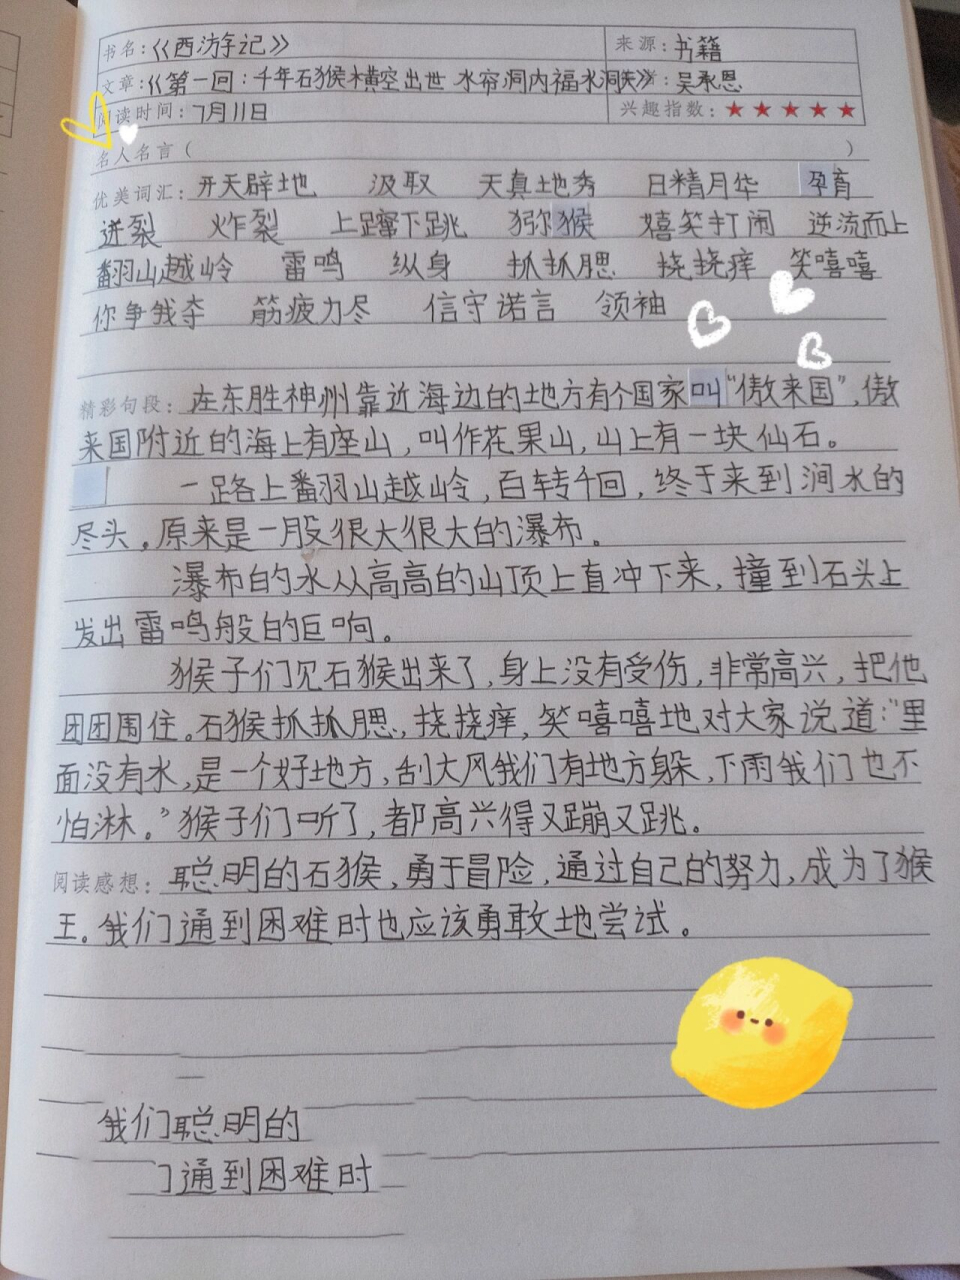 书名：《西游记》 来源：书籍
文章：《第一回：千年石猴横空出世 水帘洞内福水洞 ：吴承恩
阅读时间：7月11日 兴趣指数：★★★★★
名人名言（ ）
优美词汇：开天辟地 汲取 天真地秀 日精月华 孕育
迸裂 炸裂 上蹿下跳 猕猴 嬉笑打闹 逆流而上
翻山越岭 雷鸣 纵身 抓抓腮 挠挠痒 笑嘻嘻
你争我夺 筋疲力尽 信守诺言 领袖
精彩句段：在东胜神州靠近海边的地方有个国家叫“傲来国”，傲
来国附近的海上有座山，叫作花果山，山上有一块仙石。
一路上翻山越岭，百转千回，终于来到涧水的
尽头。原来是一股很大很大的瀑布。
瀑布的水从高高的山顶上直冲下来，撞到石头上
发出雷鸣般的巨响。
猴子们见石猴出来了，身上没有受伤，非常高兴，把他
团团围住。石猴抓抓腮，挠挠痒，笑嘻嘻地对大家说道：“里
面没有水，是一个好地方，刮大风我们有地方躲，下雨我们也不
怕淋。”猴子们听了，都高兴得又蹦又跳。
阅读感想：聪明的石猴，勇于冒险，通过自己的努力，成为了猴
王。我们通到困难时也应该勇敢地尝试。
我们聪明的
通到困难时